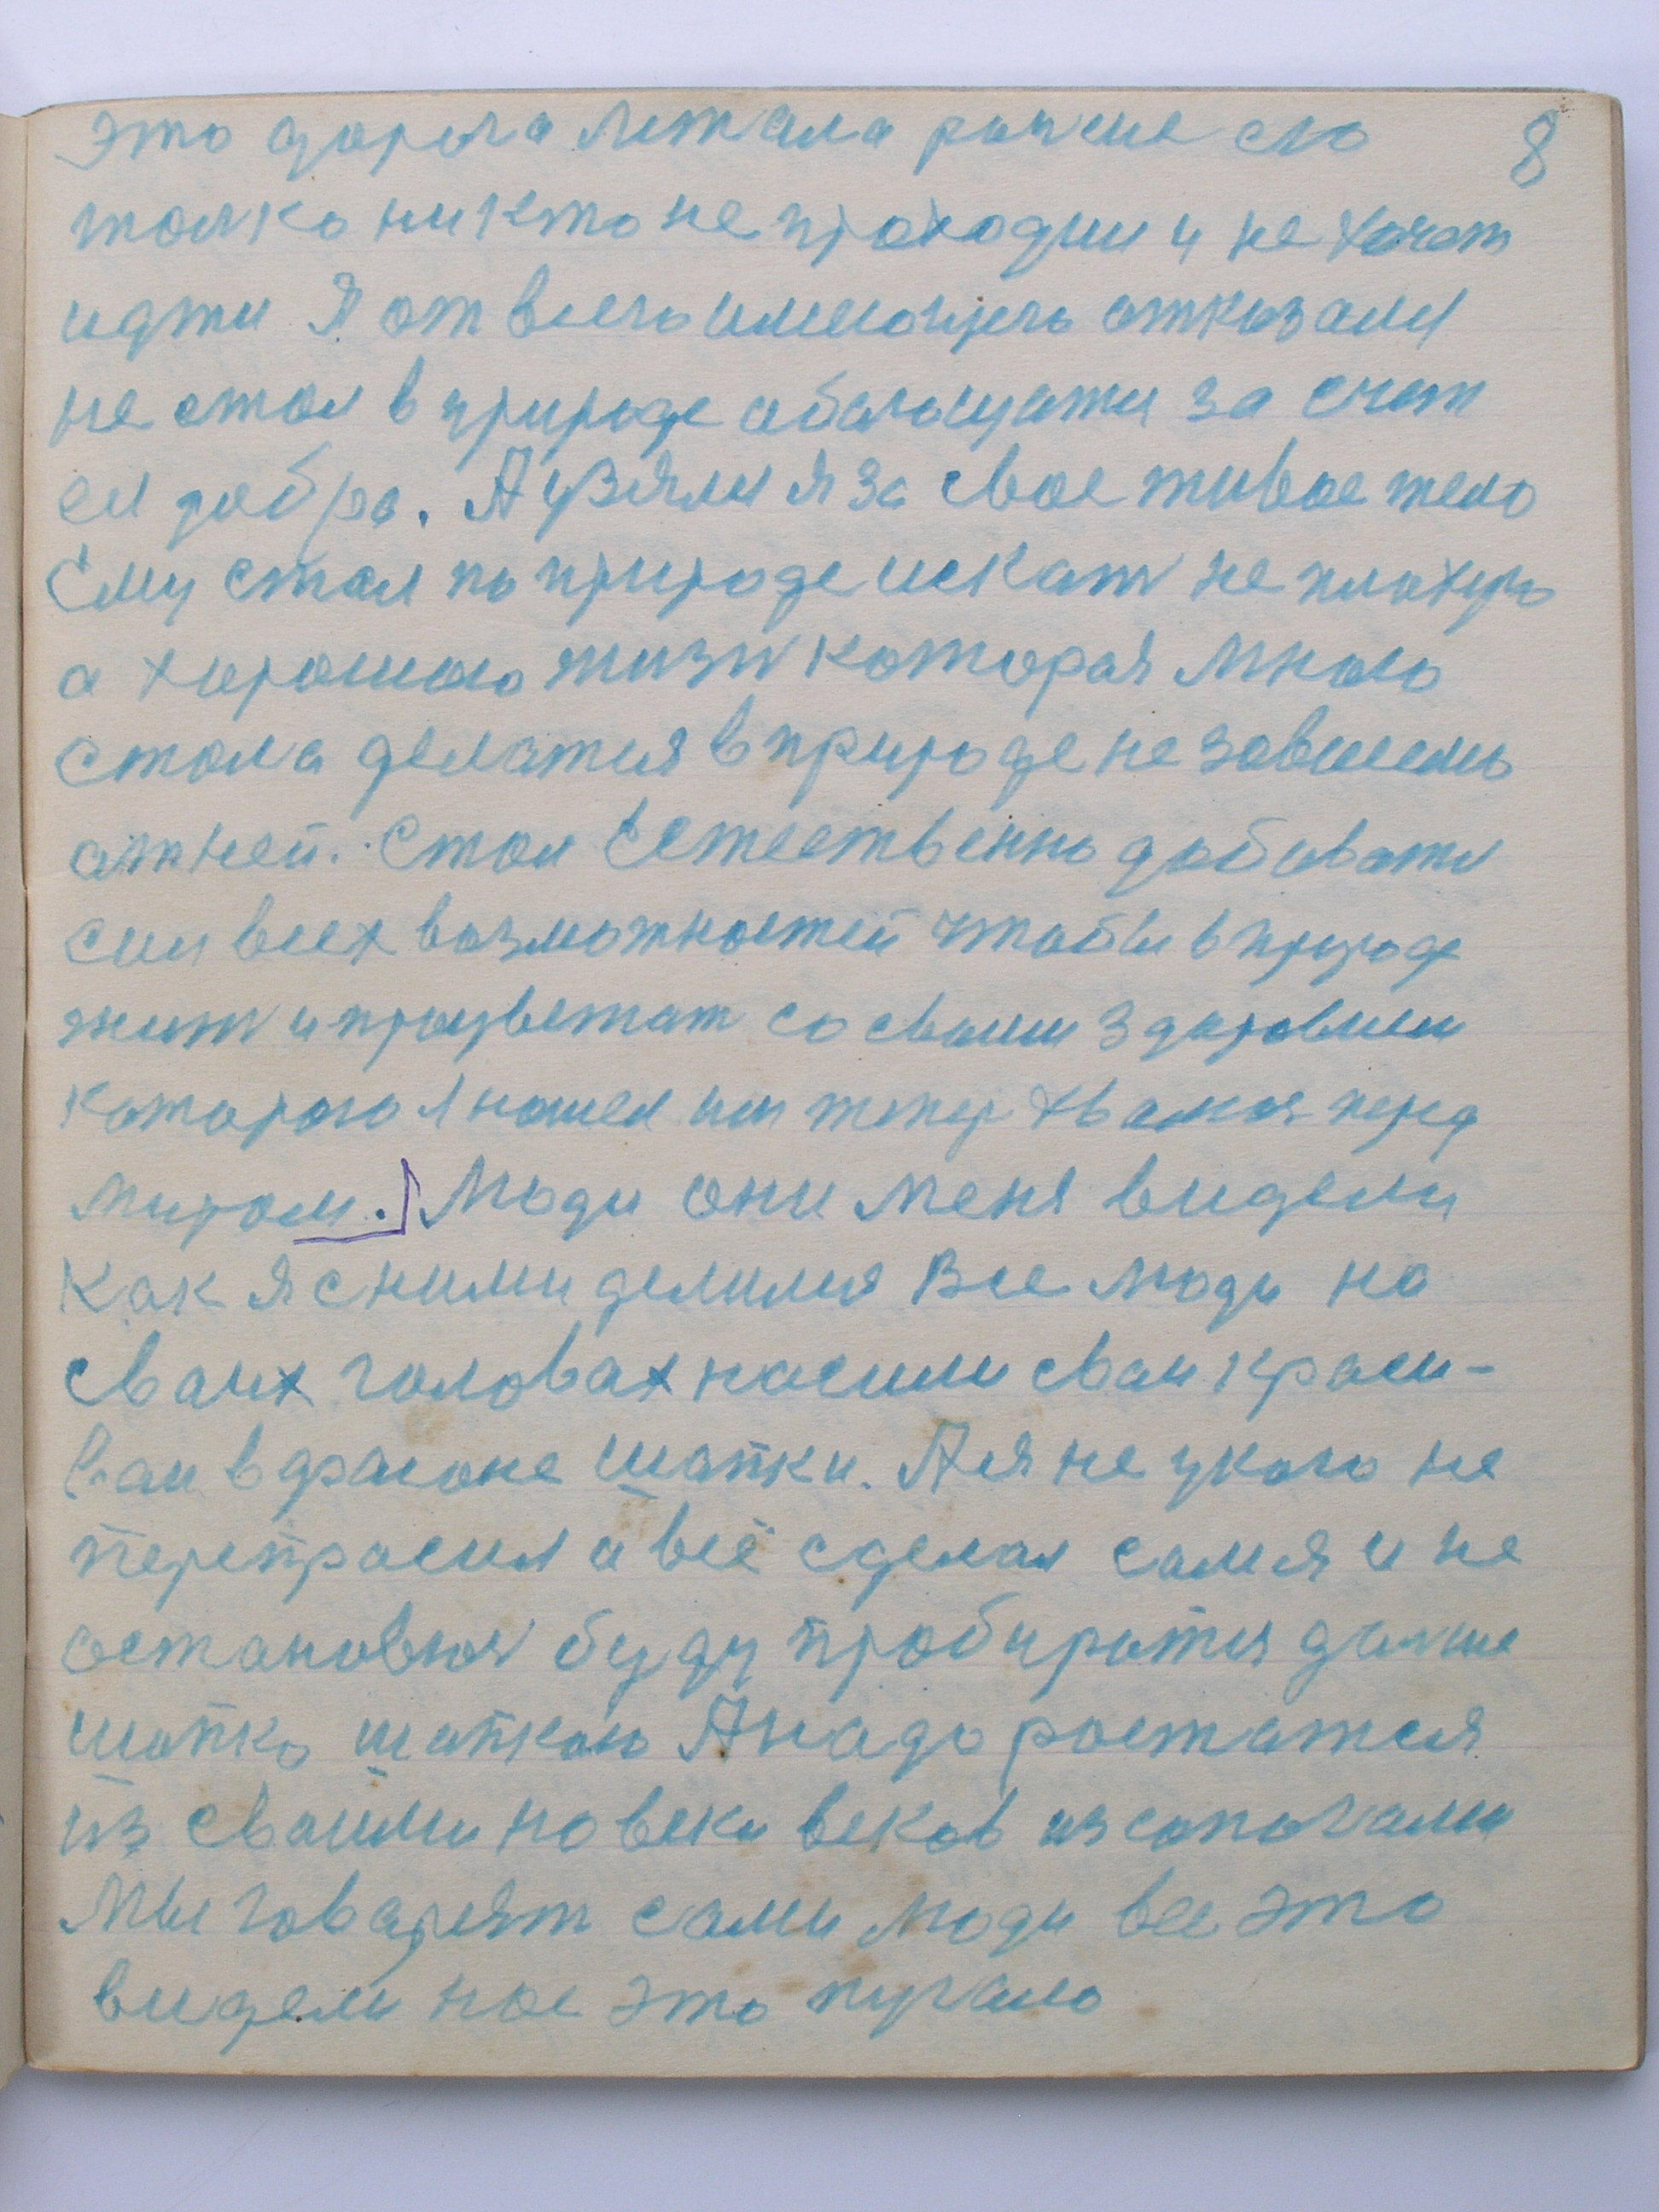 это дорога лежала ранше ею 8
толко никто не проходил и не хочет
идти Я от всего имеющего отказался
не стал в природе обагощятся за счет
ея добра. А узялся я за свое живое тело
Ему стал по природе искат не плохую
а хорошаю жизн которая мною
стола делатся в природе не зовисемо
отней. Стал Естественно добиватся
сил всех возможностей чтобы в природе
жит и процветат со своим здоровием
которого я нашел им тепер хвалюя перед
миром. Люди они меня видели
как я с ними делился Все люди на
своих головах носили свои краси-
ваи в фасоне шапки. А я не укого не
перепросил а всё сделал сам я и не
остановюсь буду пробиратся далше
шапка шапкою А надо ростатся
из своими на веки веков из сапогами
Мы говарят сами люди все это
видели нас это пугало